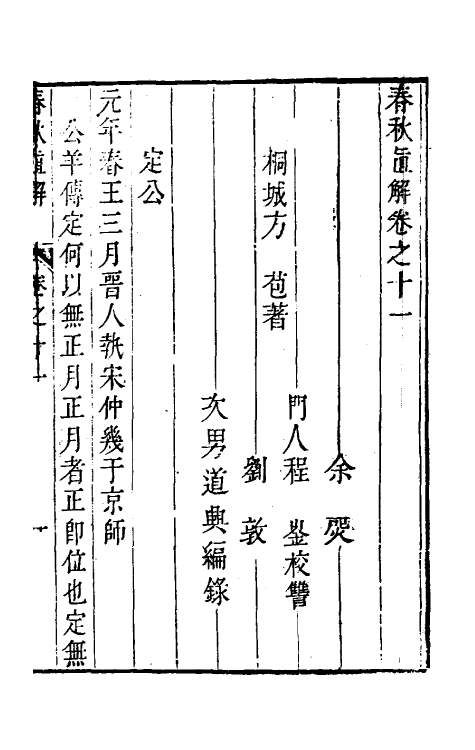 春秋直解卷之十一
余㷡
桐城方　苞著　門人程　崟校讐
劉　敦
次男道興編錄
定公
元年春王三月晉人執宋仲幾于京師
公羊傳定何以無正月正月者正即位也定無
春秋直解　卷之十一　一